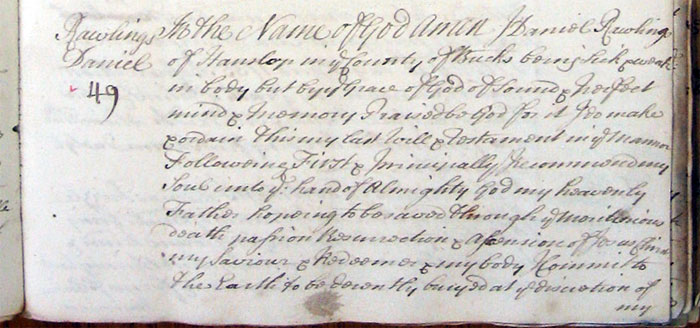 Rawlings
Daniel
49
In the Name of God Amen I Daniel Rawlings
of Hanslop in ye County of Bucks being sick & weak
in body but by ye Grace of God of Sound & Perfect
mind & Memory Praised be God for it I do make
& ordain this my last Will & Testament in ye Manner
Following First & Principally I Recommend my
Soul unto ye hand of Almighty God my heavenly
Father hopeing to be saved through ye Meritorious
death passion Resurrection & Asension of Jesus
my Saviour & Redeemer & my body I Commit to
the Earth to be decently buryed at ye discretion of
my